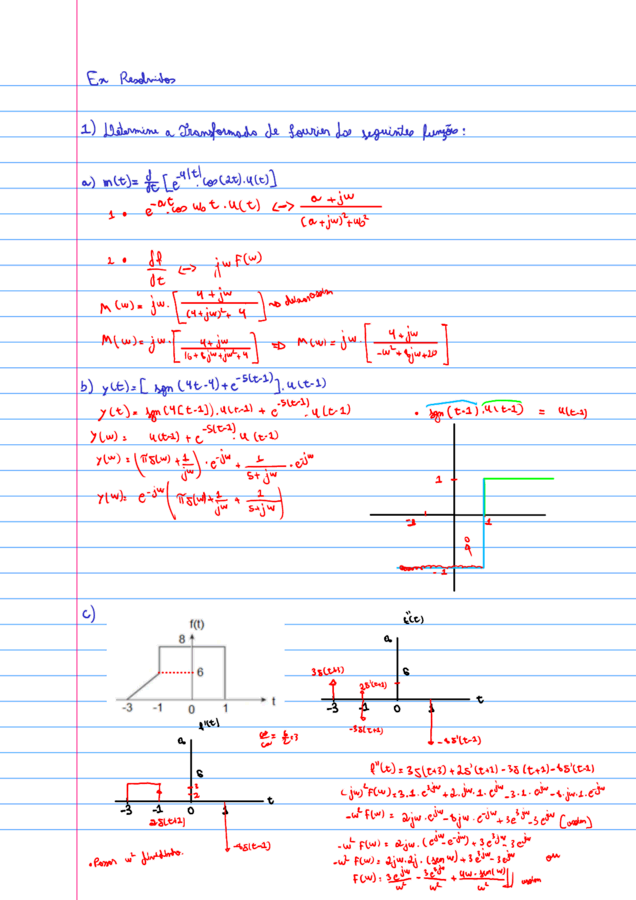 Ex Resolvidos
1) Determine a Transformada de Fourier das seguintes funções:
a) m(t) = d/dt [e^-4|t| . cos(2t) . u(t)]
1 • e^-at . cos w₀t . u(t) <-> a + jw / (a + jw)² + w₀²
2 • df/dt <-> jw F(w)
M(w) = jw . [4 + jw / (4 + jw)² + 4] =>
M(w) = jw . [4 + jw / 16 + 8jw + jw² + 4] => M(w) = jw . [4 + jw / -w² + 8jw + 20]
b) y(t) = [sgn(4t-4) + e^-5(t-1)] . u(t-1)
y(t) = sgn(4[t-1]) . u(t-1) + e^-5(t-1) . u(t-1)
• sgn(t-1) . u(t-1) = u(t-1)
y(w) = u(t-1) + e^-5(t-1) . u(t-1)
y(w) = (πδ(w) + 1/jw) . e^-jw + 1/5+jw . e^-jw
y(w) = e^-jw (πδ(w) + 1/jw + 1/5+jw)
1
1
-1
c)
f(t)
8
6
-3 -1 0 1 t
f''(t)
3δ(t+3)
2δ'(t+1)
-3 -1 0 t
-3δ(t+1)
-8δ'(t-1)
f'(t)
3
2
-3 -1 0 1 t
2δ(t+1)
-8δ(t-1)
f''(t) = 3δ(t+3) + 2δ'(t+1) - 3δ(t+1) - 8δ'(t-1)
(jw)² F(w) = 3.1.e^3jw + 2.jw.1.e^jw - 3.1.e^jw - 8.jw.1.e^-jw
-w² F(w) = 2jw . e^jw - 8jw . e^-jw + 3e^3jw - 3e^jw (assim)
-w² F(w) = 2jw . (e^jw - e^-jw) + 3e^3jw - 3e^jw
-w² F(w) = 2jw . 2j . (sen w) + 3e^3jw - 3e^jw ou
F(w) = 3e^jw/w² - 3e^3jw/w² + 4w . sen(w)/w² assim
• Passar w² dividindo.